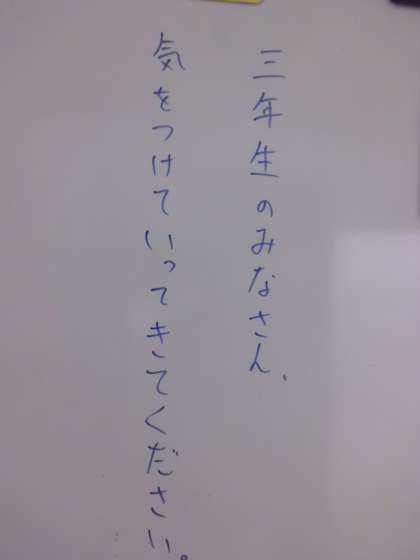 三年生のみなさん、
気をつけていってきてください。